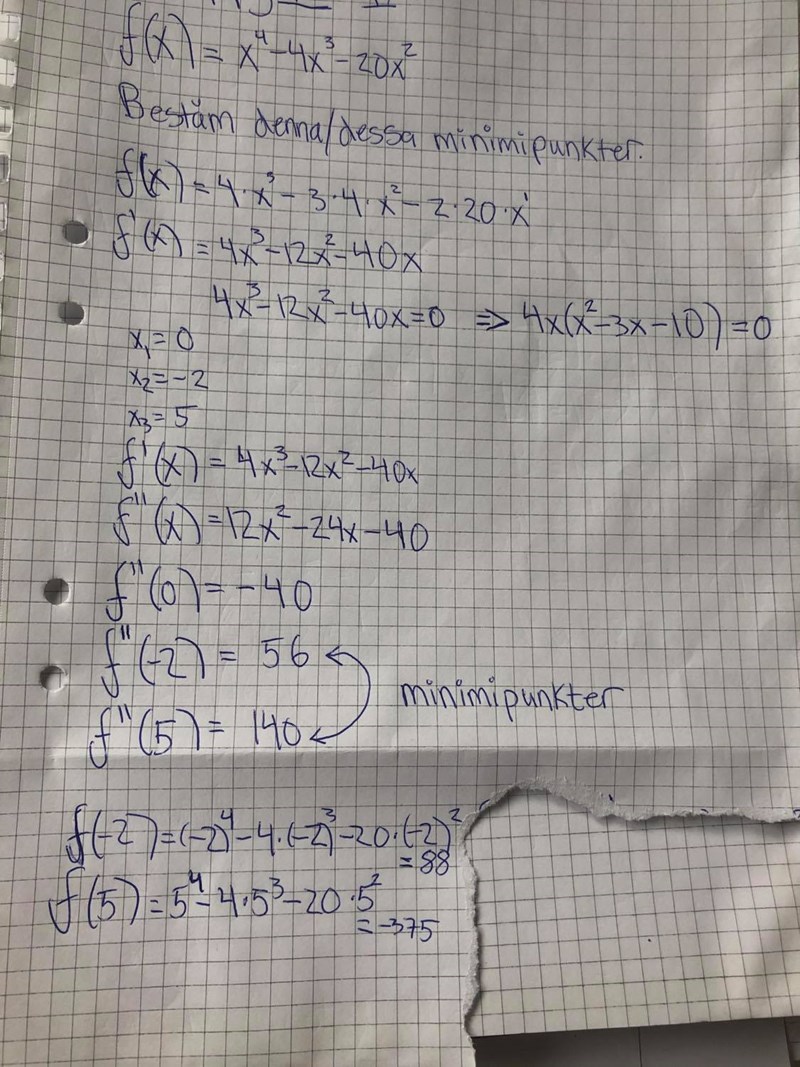 f(x) = x⁴-4x³-20x²
Bestäm denna/dessa minimipunkter.
f(x) = 4·x³ - 3·4·x² - 2·20·x¹
f'(x) = 4x³-12x²-40x
4x³-12x²-40x=0 ⇒ 4x(x²-3x-10)=0
x₁=0
x₂=-2
x₃=5
f'(x) = 4x³-12x²-40x
f''(x)=12x²-24x-40
f''(0)=-40
f''(-2) = 56
minimipunkter
f''(5) = 140
f(-2)=(-2)⁴-4·(-2)³-20·(-2)²
=88
f(5)=5⁴-4·5³-20·5²
=-375